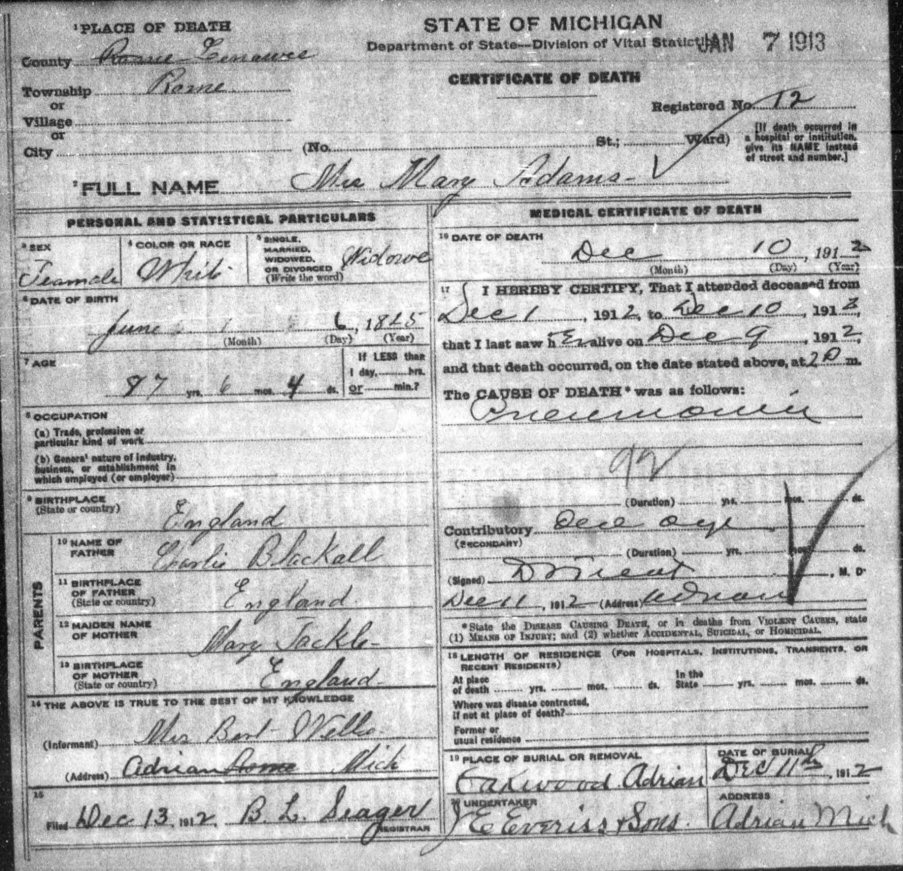 STATE OF MICHIGAN
Department of State—Division of Vital Statistics
JAN 7 1913
CERTIFICATE OF DEATH
1 PLACE OF DEATH
County Rome Lenawee
Township Rome
or
Village
or
City (No. St.; Ward)
Registered No. 12
[If death occurred in a hospital or institution, give its NAME instead of street and number.]
2 FULL NAME Mrs Mary Adams
PERSONAL AND STATISTICAL PARTICULARS
3 SEX
Feamale
4 COLOR OR RACE
White
5 SINGLE, MARRIED, WIDOWED, OR DIVORCED (Write the word)
Widowe
6 DATE OF BIRTH
June 6, 1825
(Month) (Day) (Year)
7 AGE
87 yrs. 6 mos. 4 ds.
If LESS than 1 day, hrs. or min.?
8 OCCUPATION
(a) Trade, profession or particular kind of work
(b) General nature of industry, business, or establishment in which employed (or employer)
9 BIRTHPLACE
(State or country)
England
PARENTS
10 NAME OF FATHER
Charlie Blackall
11 BIRTHPLACE OF FATHER
(State or country)
England
12 MAIDEN NAME OF MOTHER
Mary Tackle
13 BIRTHPLACE OF MOTHER
(State or country)
England
14 THE ABOVE IS TRUE TO THE BEST OF MY KNOWLEDGE
(Informant) Mrs Bert Wells
(Address) Adrian Rome Mich
15
Filed Dec 13, 1912, B. L. Seager
REGISTRAR
MEDICAL CERTIFICATE OF DEATH
16 DATE OF DEATH
Dec 10, 1912
(Month) (Day) (Year)
17 I HEREBY CERTIFY, That I attended deceased from
Dec 1, 1912, to Dec 10, 1912
that I last saw h er alive on Dec 9, 1912
and that death occurred, on the date stated above, at m.
The CAUSE OF DEATH* was as follows:
Pneumonia
92
(Duration) yrs. mos. ds.
Contributory Old age
(SECONDARY)
(Duration) yrs. mos. ds.
(Signed) , M. D.
Dec 11, 1912 (Address) Adrian
*State the DISEASE CAUSING DEATH, or in deaths from VIOLENT CAUSES, state
(1) MEANS OF INJURY; and (2) whether ACCIDENTAL, SUICIDAL, or HOMICIDAL.
18 LENGTH OF RESIDENCE (FOR HOSPITALS, INSTITUTIONS, TRANSIENTS, OR RECENT RESIDENTS)
At place of death yrs. mos. ds. In the State yrs. mos. ds.
Where was disease contracted, if not at place of death?
Former or usual residence
19 PLACE OF BURIAL OR REMOVAL
Oakwood Adrian
DATE OF BURIAL
Dec 11th, 1912
20 UNDERTAKER
J E Everiss & Sons.
ADDRESS
Adrian Mich